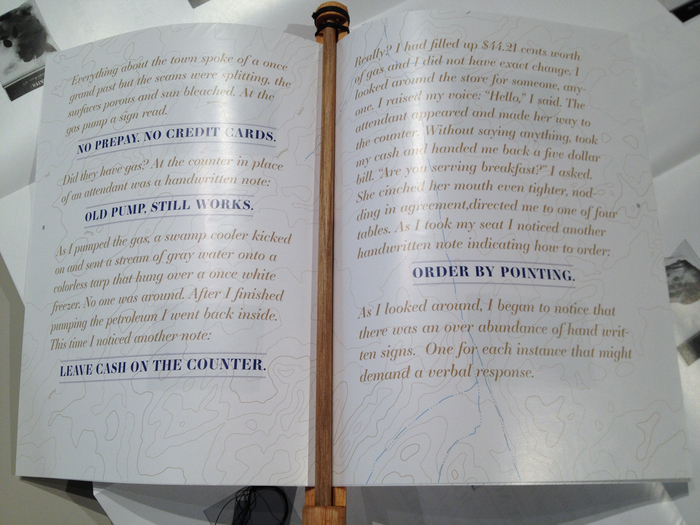 Everything about the town spoke of a once
grand past but the seams were splitting, the
surfaces porous and sun bleached. At the
gas pump a sign read.
NO PREPAY. NO CREDIT CARDS.
Did they have gas? At the counter in place
of an attendant was a handwritten note:
OLD PUMP, STILL WORKS.
As I pumped the gas, a swamp cooler kicked
on and sent a stream of gray water onto a
colorless tarp that hung over a once white
freezer. No one was around. After I finished
pumping the petroleum I went back inside.
This time I noticed another note:
LEAVE CASH ON THE COUNTER.
Really? I had filled up $44.21 cents worth
of gas and I did not have exact change. I
looked around the store for someone, any-
one. I raised my voice: "Hello," I said. The
attendant appeared and made her way to
the counter. Without saying anything, took
my cash and handed me back a five dollar
bill. "Are you serving breakfast?" I asked.
She cinched her mouth even tighter, nod-
ding in agreement,directed me to one of four
tables. As I took my seat I noticed another
handwritten note indicating how to order:
ORDER BY POINTING.
As I looked around, I began to notice that
there was an over abundance of hand writ-
ten signs. One for each instance that might
demand a verbal response.